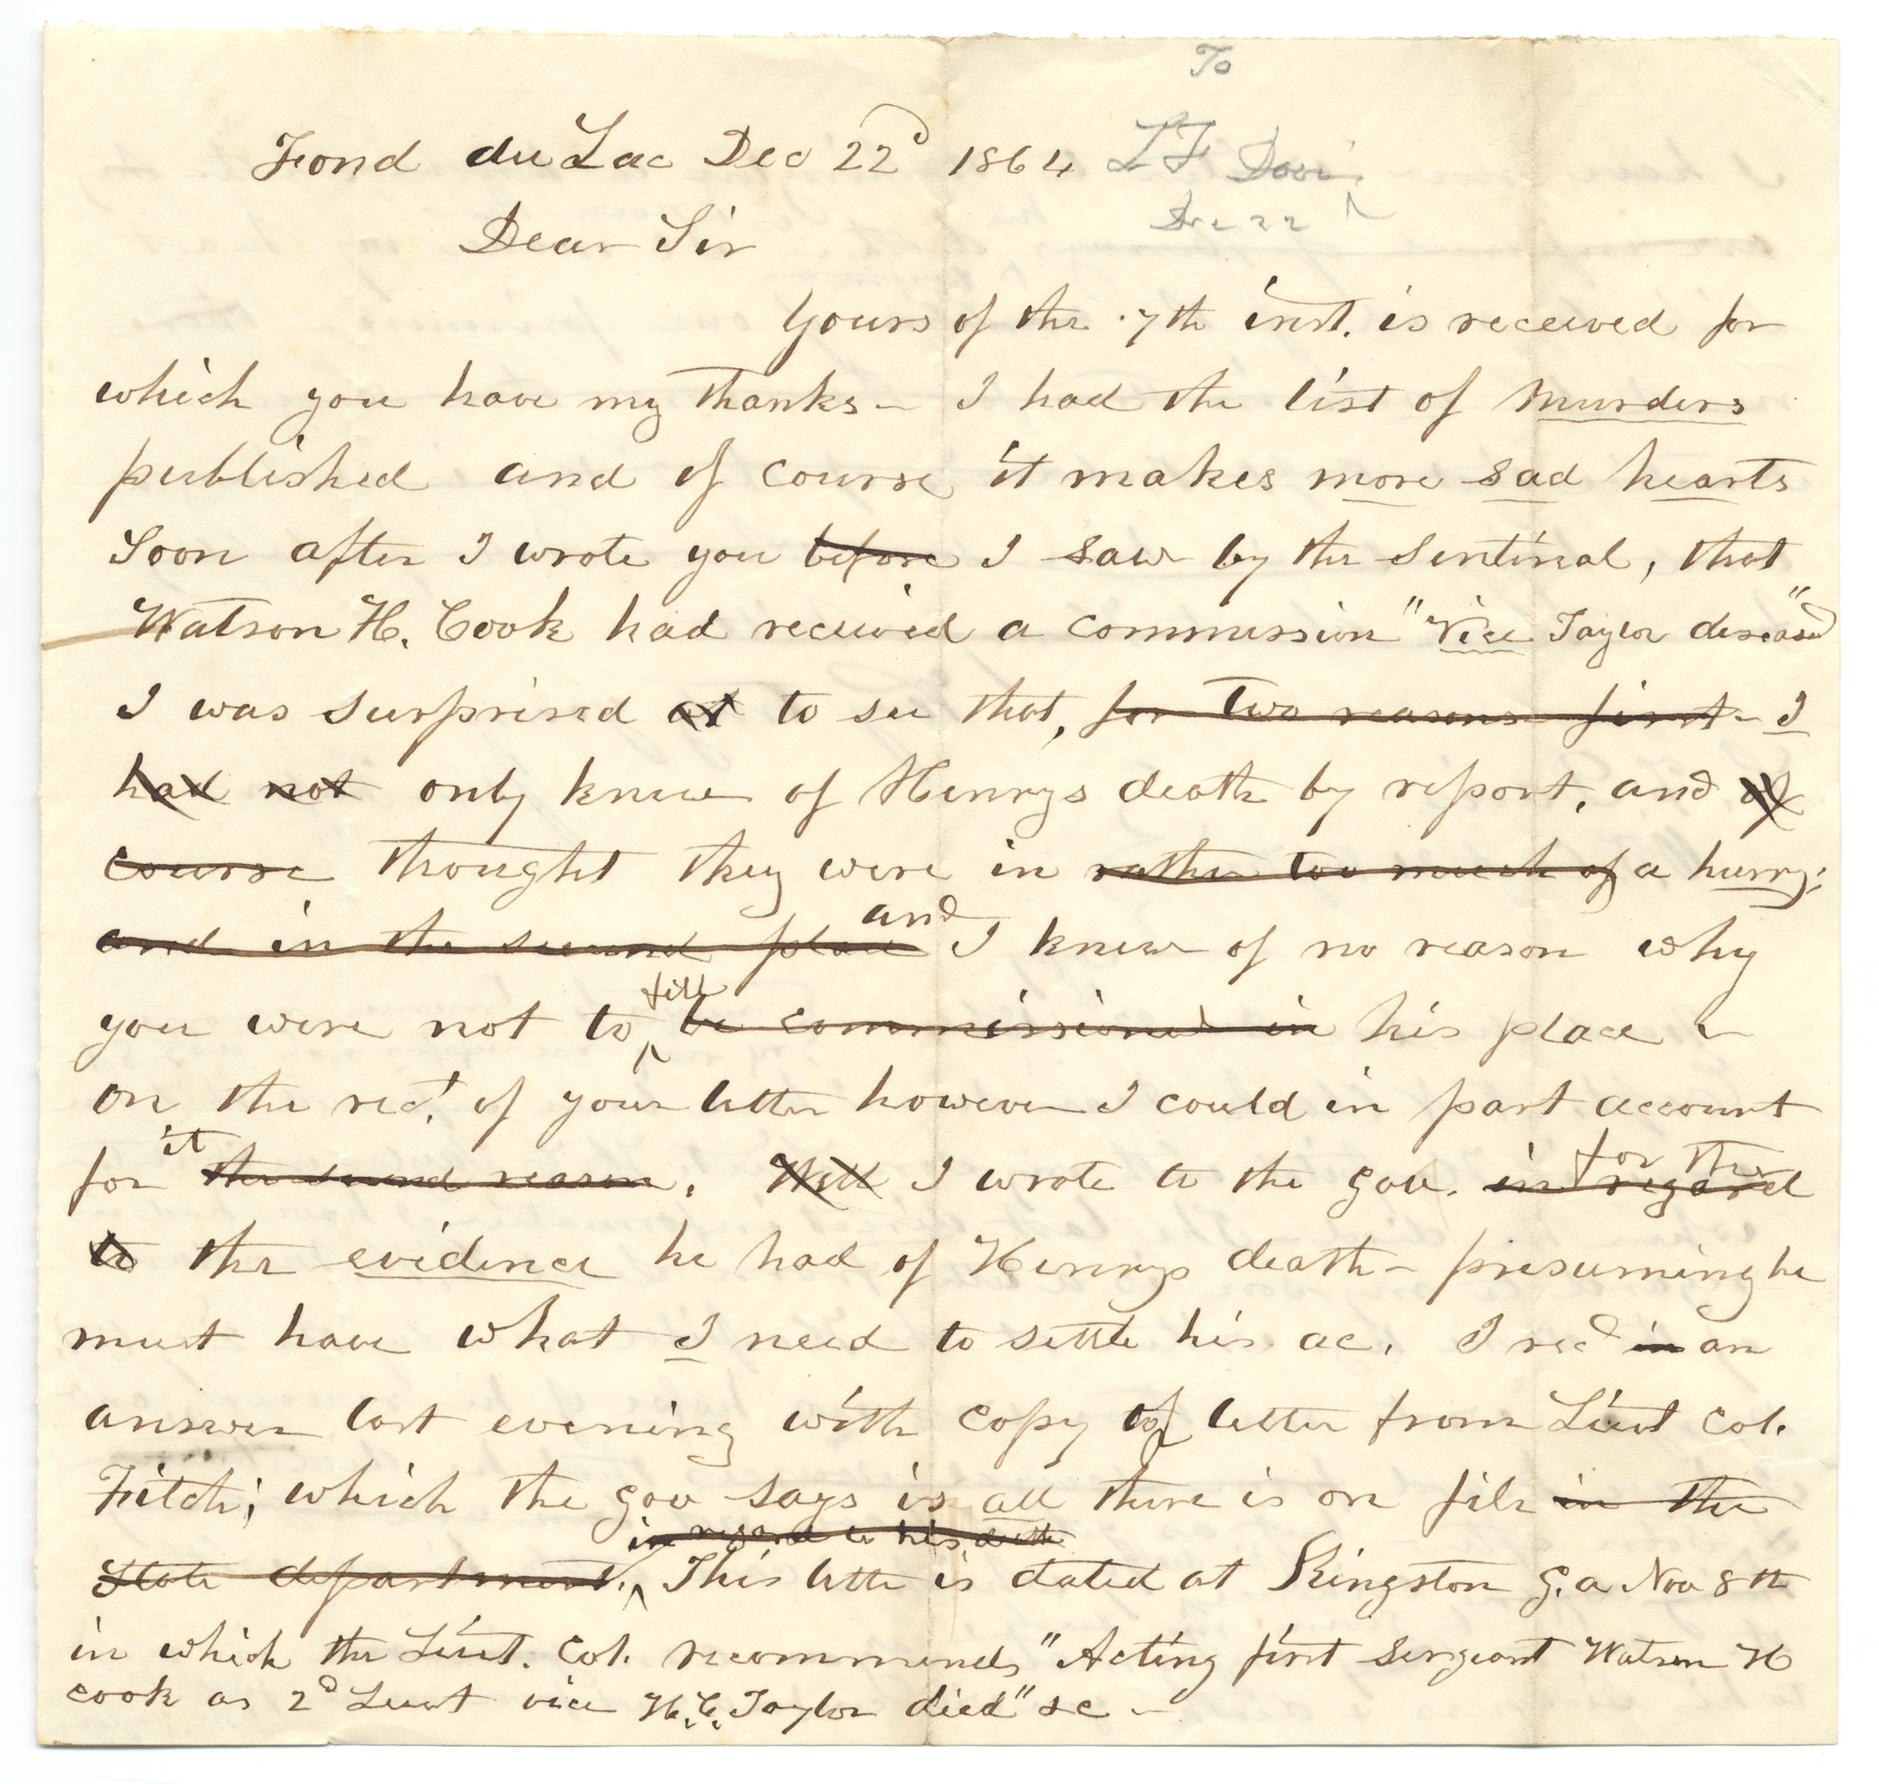 To
Fond du Lac Dec 22d 1864 L F Davis
Dec 22
Dear Sir
Yours of the 7th inst. is received for
which you have my thanks - I had the list of murders
published and of course it makes more sad hearts
Soon after I wrote you before I saw by the Sentinal, that
Watson H. Cook had received a commission "Vice Taylor deseased"
I was surprised at to see that, for two reasons first - I
had not only knew of Henrys death by report, and of
course thought they were in rather too much of a hurry;
and in the second place and I knew of no reason why
you were not to fill be commissioned in his place -
on the rect. of your letter however I could in part account
for it the second reason. Well I wrote to the gov. in regard for the
to the evidence he had of Henrys death - presuming he
must have what I need to settle his ac. I recd in an
answer last evening with copy of letter from Lieut Col.
Fitch; which the gov says is all there is on file in the
in regard to his death
State department. This letter is dated at Kingston G.a Nov 8th
in which the Lieut. Col. recommends "Acting first sergeant Watson H
Cook as 2d Lieut vice H. C. Taylor died" &c -